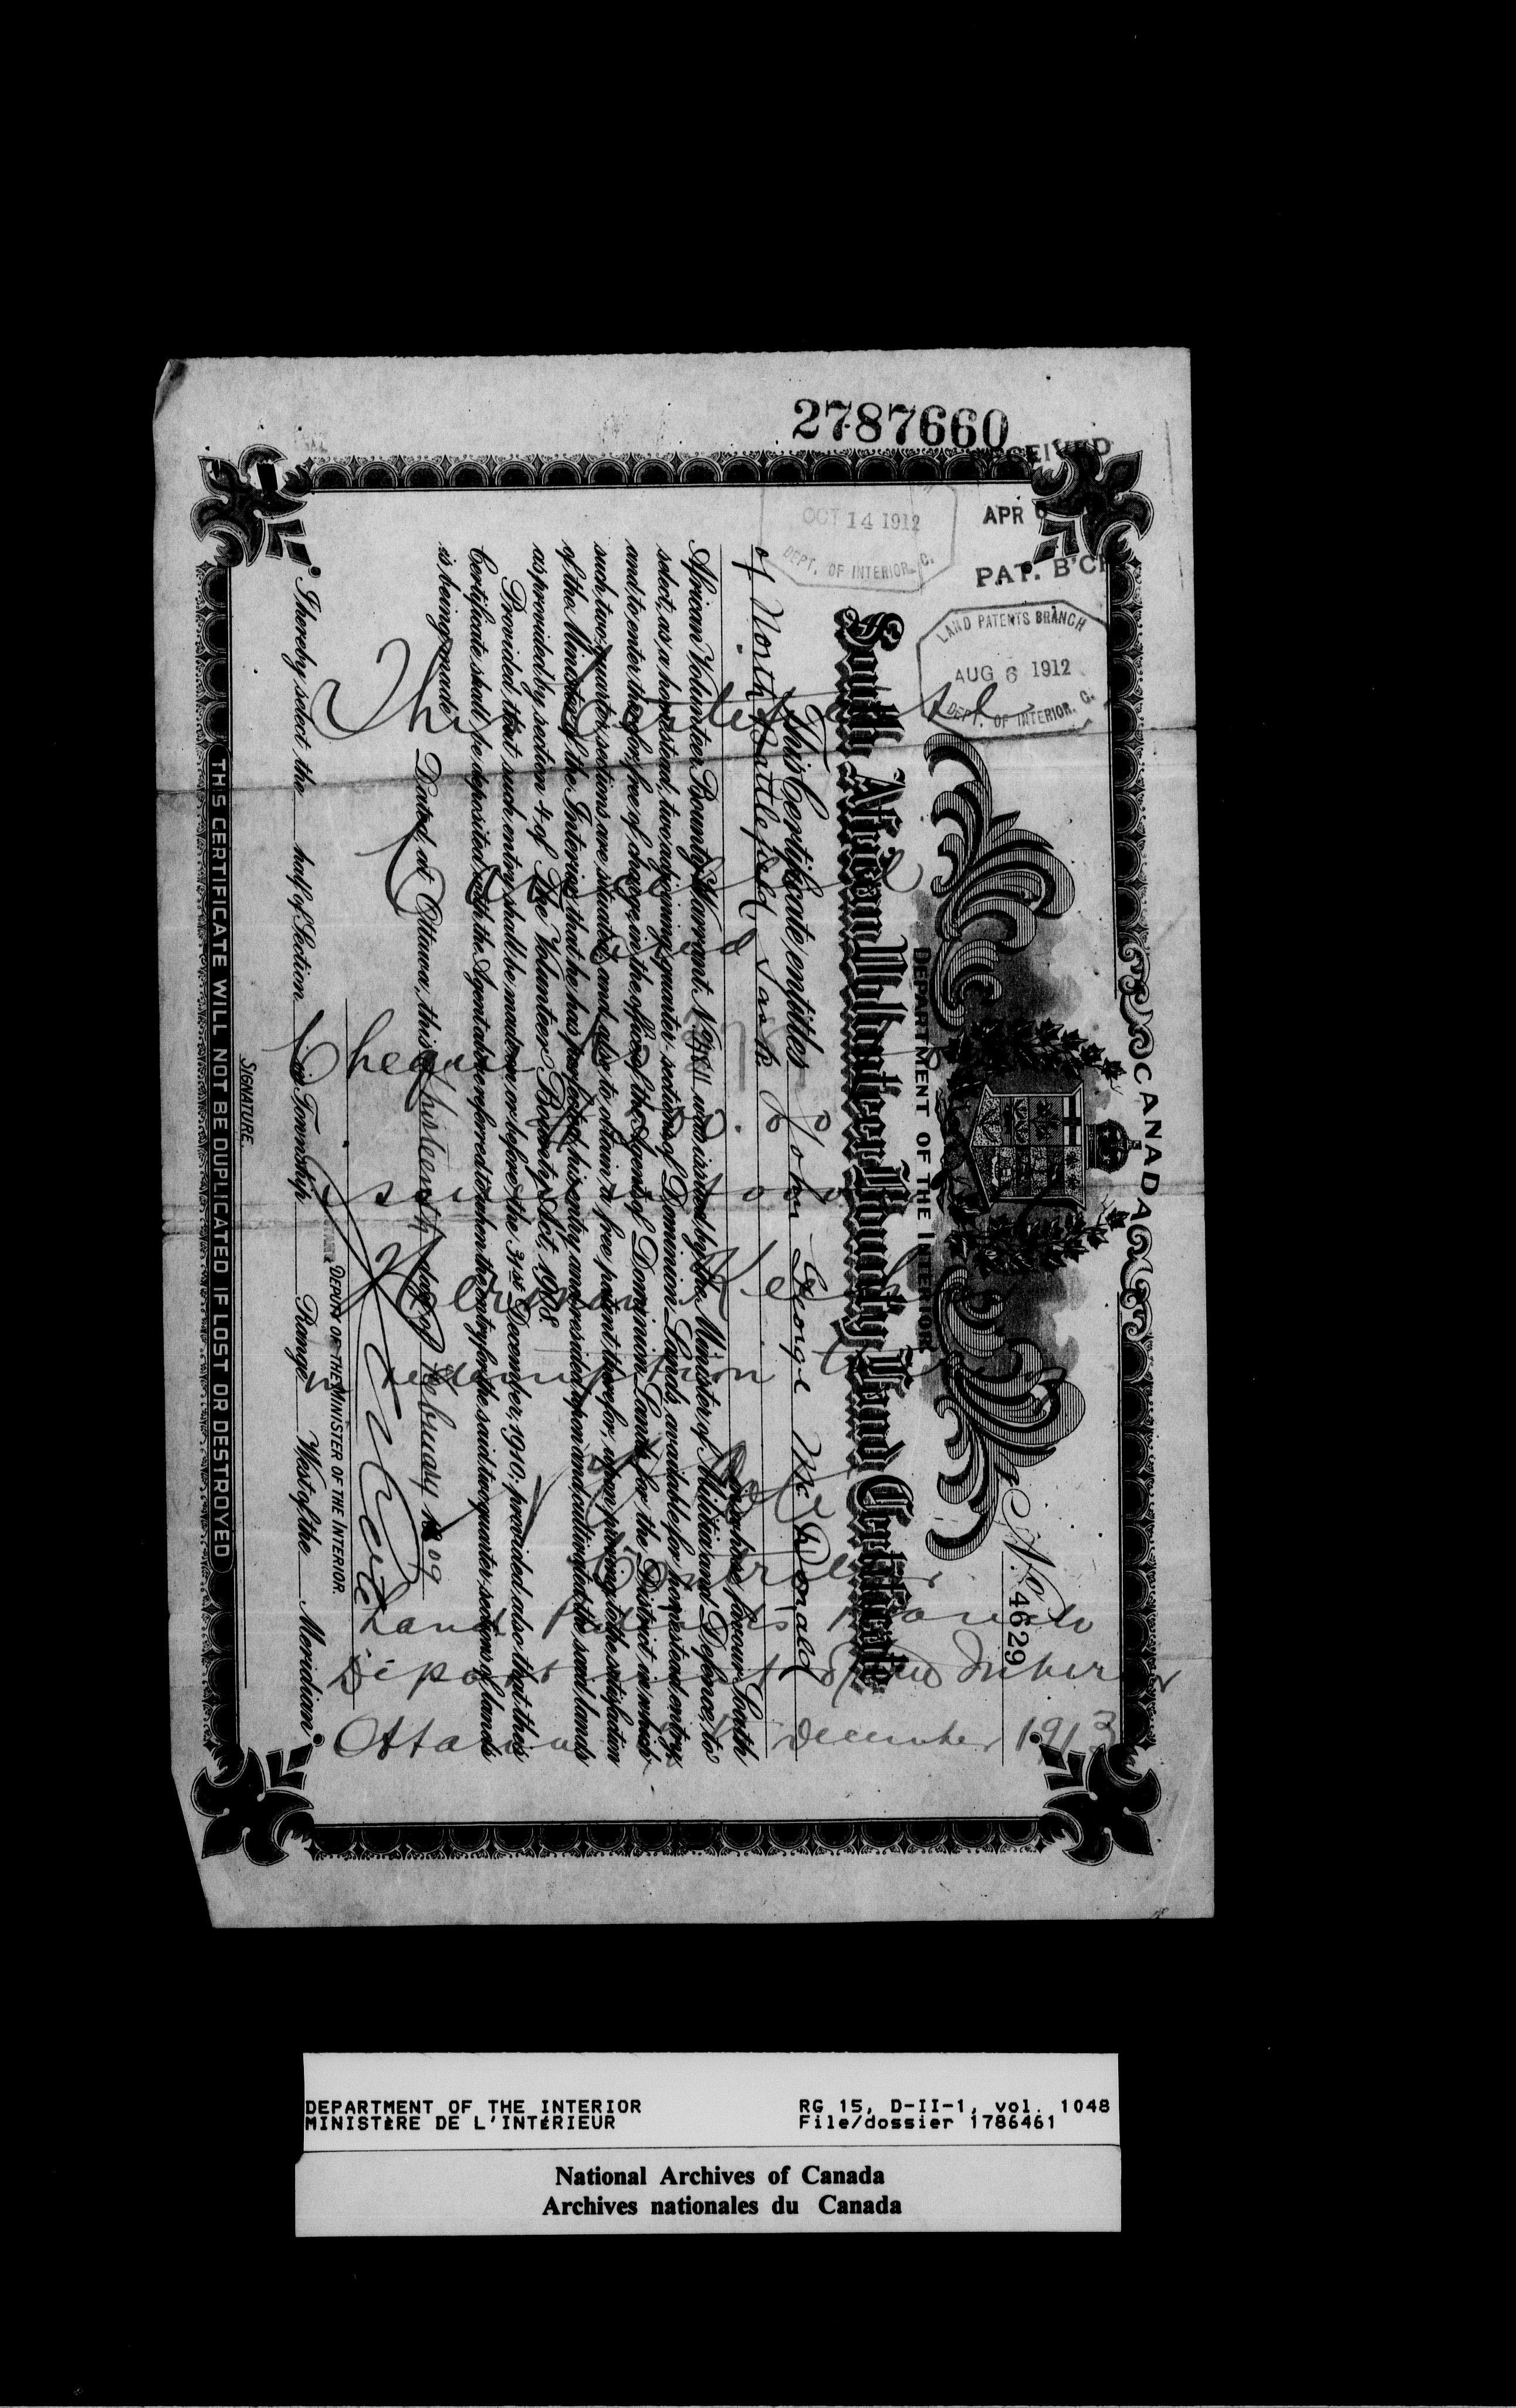 2787660
RECEIVED
APR 6
PAT. B'CH
OCT 14 1912
DEPT. OF INTERIOR. C.
LAND PATENTS BRANCH
AUG 6 1912
DEPT. OF INTERIOR. C.
CANADA
No. 4629
DEPARTMENT OF THE INTERIOR
South African Volunteer Bounty Land Certificate
This Certificate entitles John George McDonald
of North Battleford, Sask. in whose favour South
African Volunteer Bounty Warrant No. was issued by the Minister of Militia and Defence, to
select, as a homestead, two adjoining quarter-sections of Dominion Lands, available for homestead entry,
and to enter therefor, free of charge, in the office of the Agent of Dominion Lands for the District in which
such two quarter-sections are situated, and also to obtain a free patent therefor, upon proving to the satisfaction
of the Minister of the Interior that he has perfected his entry and resided upon and cultivated the said lands
as provided by section 4 of The Volunteer Bounty Act, 1908.
Provided, that such entry shall be made on or before the 31st December, 1910: provided, also, that this
Certificate shall be deposited with the Agent above referred to when the entry for the said two quarter-sections of lands
is being made.
Dated at Ottawa, this thirteenth day of February 1909
DEPUTY OF THE MINISTER OF THE INTERIOR.
I hereby select the half of Section in Township Range West of the Meridian.
SIGNATURE.
THIS CERTIFICATE WILL NOT BE DUPLICATED IF LOST OR DESTROYED
This Certificate
and
Cheque
redemption
Controller
Land Patents Branch
Department of the Interior
Ottawa December 1913
DEPARTMENT OF THE INTERIOR RG 15, D-II-1, vol. 1048
MINISTÈRE DE L'INTÉRIEUR File/dossier 1786461
National Archives of Canada
Archives nationales du Canada